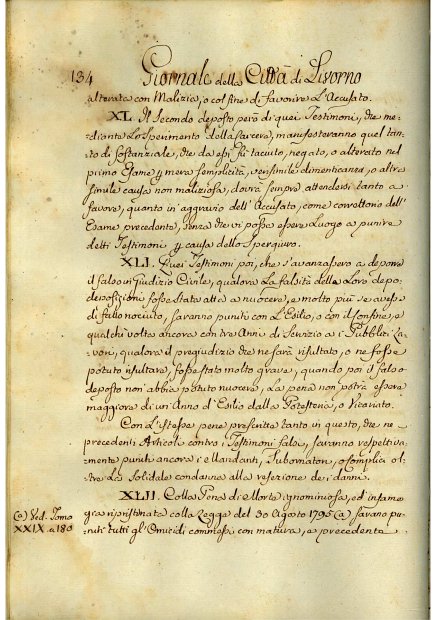 134 Giornale della Città di Livorno
alterate con Malizia, o col fine di favorire L'Accusato.
XL. Il Secondo deposto però di quei Testimoni, che me-
diante Lo Sperimento della Carcere, manifesteranno quel tan-
to di sostanziale, che da essi fù taciuto, negato, o alterato nel
primo Esame p mera semplicità, verisimile dimenticanza, o altra
simile causa non maliziosa, dovrà sempre attendersi tanto a
favore, quanto in aggravio dell'Accusato, come correttorio dell'
Esame precedente, senza che vi possa essere Luogo a punire
detti Testimoni p causa dello Spergiuro.
XLI. Quei Testimoni poi, che s'avanzassero a deporre
il falso in Giudizio Civile, qualora La falsità della Loro depo-
deposizioni fosse stata atta a nuocere, e molto più se avesse
di fatto nociuto, saranno puniti con L'Esilio, o con il confine, e
qualche volta ancora con tre Anni di Servizio a i Pubblici La-
vori, qualora il pregiudizio che ne sarà risultato, o ne fosse
potuto risultare, fosse stato molto grave, quando poi il falso
deposto non abbia potuto nuocere, La pena non potrà essere
maggiore di un'Anno d'Esilio dalla Potesteria, o Vicariato.
Con L'istesse pene prescritte tanto in questo, che ne
precedenti Articoli contro i Testimoni falsi, saranno respettiva-
mente puniti ancora i Mandanti, Subornatori, o complici ol-
tre La Solidale condanna alla refezione dei danni.
XLII. Colla Pena di Morte ignominiosa, ed infame
(a) Ved. Tomo gra ripristinata colla Legge del 30 Agosto 1795 (a) sarano pu-
XXIX a 180 niti tutti gl'Omicidi commessi con matura, e precedente